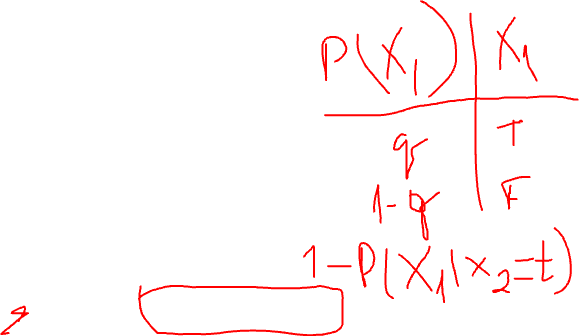 P(X₁) | X₁
q | T
1-q | F
1-P(X₁|x₂=t)